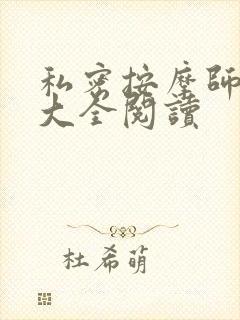 私密按摩師
大全閱讀
杜希萌